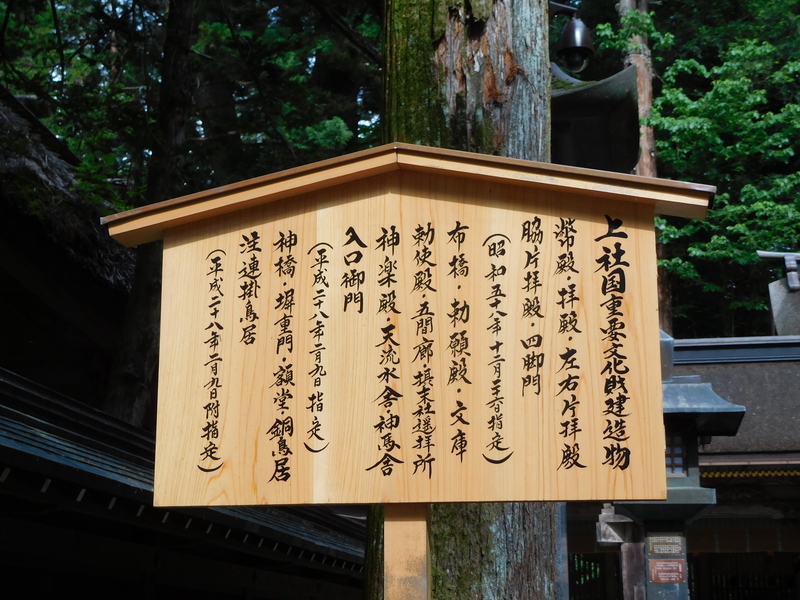 上社国重要文化財建造物
幣殿・拝殿・左右片拝殿
脇片拝殿・四脚門
（昭和五十八年十二月二十六日指定）
布橋・勅願殿・文庫
勅使殿・五間廊・摂末社遥拝所
神楽殿・天流水舎・神馬舎
入口御門
（平成二十八年二月九日指定）
神橋・塀重門・額堂・銅鳥居
注連掛鳥居
（平成二十八年二月九日附指定）